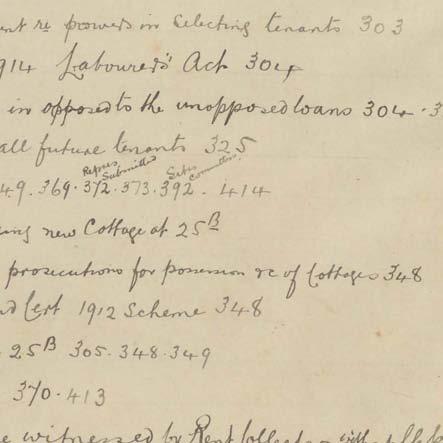 ent re powers in Selecting tenants 303
914 Labourers' Act 304
in opposed to the unopposed loans 304. 3
all future tenants 325
Repres Submitted Extra Committee
49. 369. 372. 373. 392. 414
ing new Cottage at 25B
prosecutions for possession &c of Cottages 348
nd Cert 1912 Scheme 348
25B 305. 348. 349
370. 413
e witnessed by Rent Collector with